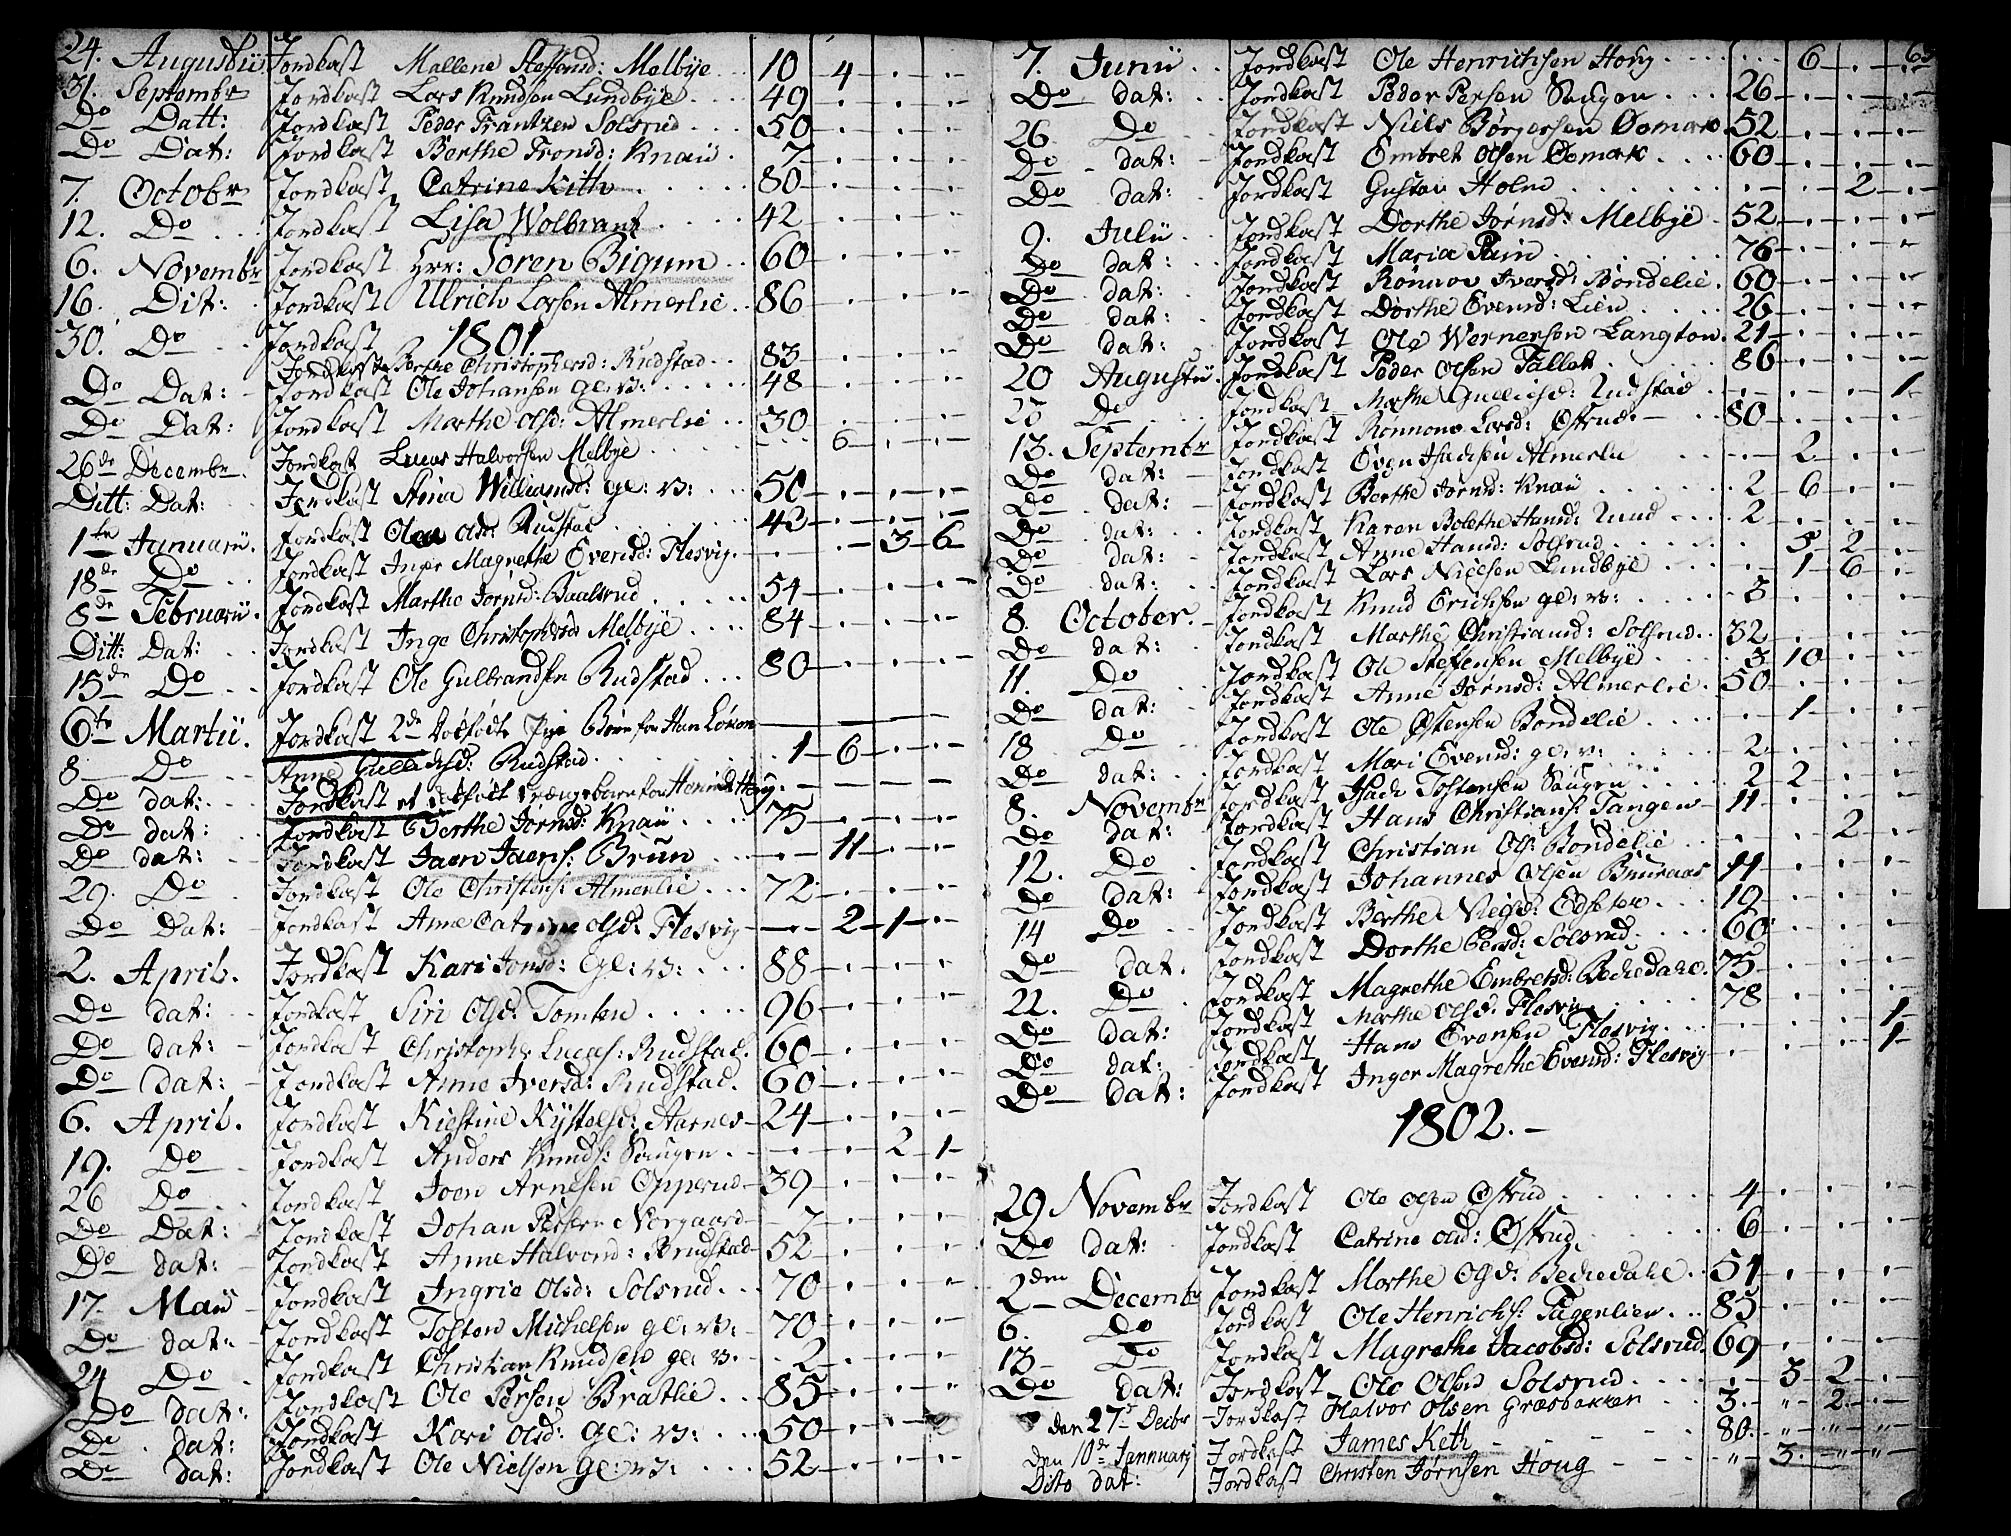 24. Augustii Jordkast Mallene Steffensd: Melbÿe 10 4
31. Septembr Jordkast Lars Knudsen Lundbÿe 49
Do Datt: Jordkast Peder Frantzen Solsrud 50
Do Dat: Jordkast Berthe Tronsd: Knaii 7
7. Octobr Jordkast Catrine Kith 80
12. Do Jordkast Lisa Wolbrant 42
6. Novembr Jordkast Hrr: Sören Bigum 60
16. Dit: Jordkast Ulrich Larsen Almerlie 86
30. Do Jordkast
1801
Jordkast Berthe Christophersd: Rudstad 83
Do Dat: Jordkast Ole Johansen Gl: v: 48
Do Dat: Jordkast Marthe Olsd: Almerlie 30
26de Decembr. Jordkast Lucas Halvorsen Melbÿe 6
Ditt: Dat: Jordkast Stina Williamsd: gl: v: 50
1te Januarii. Jordkast Olea Olsd: Rudstad 43
18de Do Jordkast Inger Magrethe Evensd: Flesvig 3 6
8de Februarii. Jordkast Marthe Jörnsd: Baalsrud 54
Ditt: Dat: Jordkast Inge Christophersd: Melbÿe 84
15de Do Jordkast Ole Gulbrandsen Rudstad 80
6te Martii. Jordkast 2de dödfödte Pige Börn for Han Löken
8 Do Anne Gullichsd: Rudstad 1 6
Do dat: Jordkast et dödfödt Drængebarn for Henrich Houg
Do dat: Jordkast Berthe Jörnsd: Knaii 75
Do dat: Jordkast Jaen Jaens: Brün 11
29. Do Jordkast Ole Christens: Almerlie 72
Do Dat: Jordkast Anne Catrine Olsd: Flesvig 2 1
2. April. Jordkast Kari Jonsd: Gl: v: 88
Do dat: Jordkast Siri Olsd: Tomten 96
Do dat: Jordkast Christopher Lucas: Rudstad. 60
Do dat: Jordkast Anne Iversd: Rudstad. 60
6. April. Jordkast Kiestine Kÿstelsd: Aarnes 24
19. Do Jordkast Anders Knuds: Saugen 2 1
26 Do Jordkast Joen Arnesen Opperud 39
Do Dat: Jordkast Johan Persen Norgaard 7
Do dat: Jordkast Anne Halvorsd: Brudstad 52
17. Maii Jordkast Ingrid Olsd: Solsrud 70
Do dat: Jordkast Tosten Michelsen gl: v: 70
24 Do Jordkast Christian Knudsen gl: v. 2
Do dat: Jordkast Ole Persen Bratlie 85
Do dat: Jordkast Kari Olsd: Gl: v: 50
Do dat: Jordkast Ole Nielsen Gl: v: 52
7. Junii Jordkast Ole Henrichsen Houg 6
Do dat: Jordkast Peder Persen Saugen 26
26 Do Jordkast Niels Börgersen Öemark 52
Do dat: Jordkast Embret Olsen Öemark 60
Do dat: Jordkast Gustav Holm 2
9. Julii Jordkast Dorthe Jörnsd: Melbÿe 52
Do dat: Jordkast Maria Rün 76
Do dat: Jordkast Rönnov Iversd: Bondelie 60
Do dat: Jordkast Dorthe Evensd: Lien 26
Do dat: Jordkast Ole Wernersen Langton 21
20 Augustii Jordkast Peder Olsen Fallet 86
25 Do Jordkast Marthe Gullichsd: Rudstad 1
13. Septembr Jordkast Rönnov Larsd: Östrud 80
Do dat: Jordkast Even Isachsen Almerlie 2
Do dat: Jordkast Berthe Jörnsd: Knaii 2 6
Do dat: Jordkast Karen Bolethe Hansd: Ruud 2
Do dat: Jordkast Anne Hansd: Solsrud 5 2
Do dat: Jordkast Lars Nielsen Lundbÿe 1 6
8. October. Jordkast Knud Erichsen gl: v: 3
Do dat: Jordkast Marthe Christiansd: Solsrud 32
11. Do Jordkast Ole Steffensen Melbÿe 3 10
Do dat: Jordkast Anne Jörnsd: Almerlie 50
18 Do Jordkast Ole Östensen Bondelie 1
Do dat: Jordkast Mari Evensd: gl: v: 2
8. Novembr Jordkast Isach Tostensen Saugen 2 2
Do dat: Jordkast Hans Christians: Tangen 11
12. Do Jordkast Christian Ols: Bondelie 2
Do dat: Jordkast Johannes Olsen Bruraas 11
14 Do Jordkast Berthe Nielsd: Edseter 19
Do dat. Jordkast Dorthe Persd: Solsrud 60
22. Do Jordkast Magrethe Embretsd: Bechedahl. 75
Do dat: Jordkast Marthe Olsd: Flesvig 78
Do dat: Jordkast Hans Evensen Flesvig 1
Do dat: Jordkast Inger Magrethe Evensd: Flesvig 1
1802.
29 Novembr Jordkast Ole Olsen Östrud 4
Do dat: Jordkast Catrine Olsd: Östrud 6
2den Decembr Jordkast Marthe Olsd: Bechedahl 51
6. Do Jordkast Ole Henrichs: Fagerlien 85
13 Do Jordkast Magrethe Jacobsd: Solsrud 69
Do dat: Jordkast Ole Olsen Solsrud 3 2
den 27de Decbr Jordkast Halvor Olsen Græsbakken 3 2
den 10de Januarj Jordkast James Keth 80
Dito dat: Jordkast Christen Jörnsen Houg 3